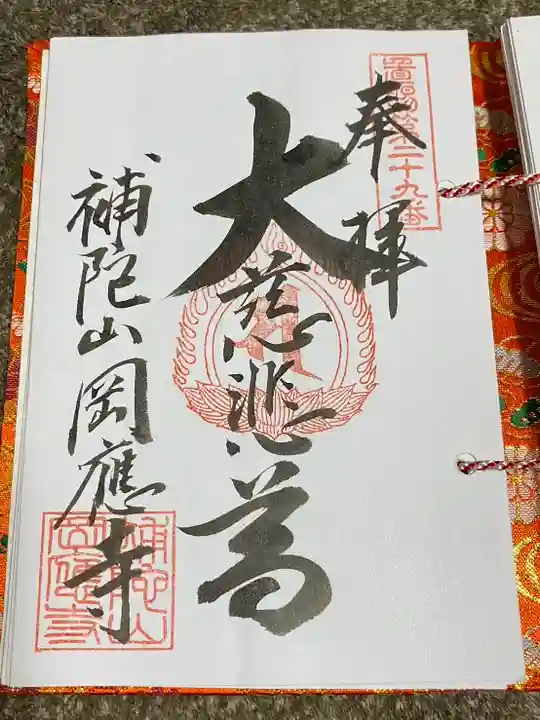 置賜第二十九番
奉拝
大慈悲尊
補陀山岡應寺
補陀山岡應寺